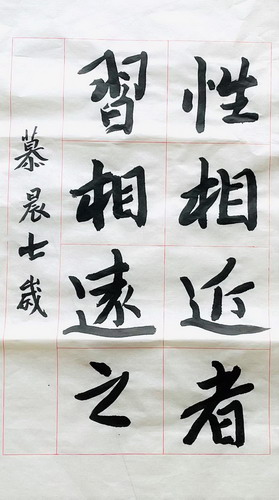 性相近者
習相遠之
慕晨七歲